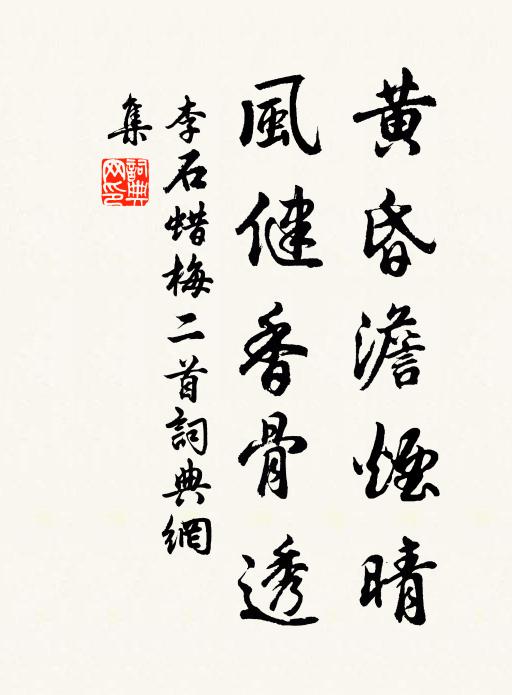 黃昏澹煙晴
風健香骨透
李石蜡梅二首詞典網
集
詞典
网印